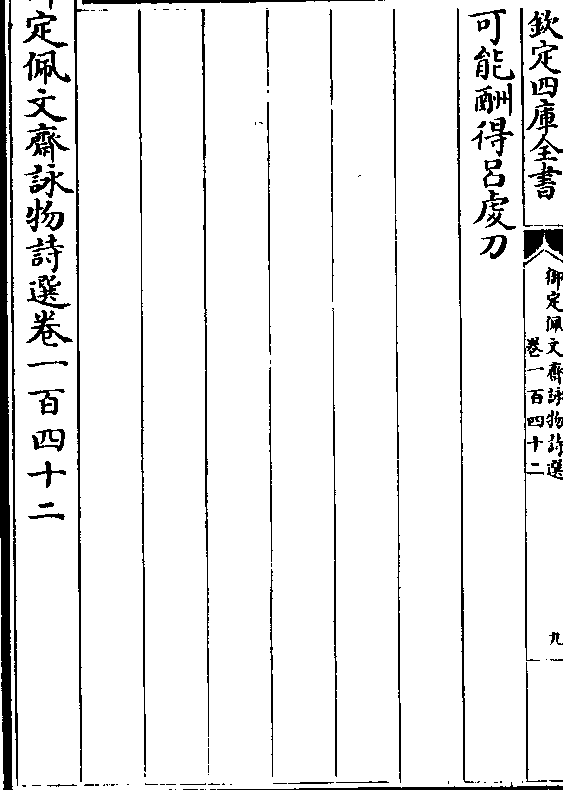 欽定四庫全書
御定佩文齋詠物詩選
卷一百四十二
九
可能酬得呂虔刀
御定佩文齋詠物詩選卷一百四十二